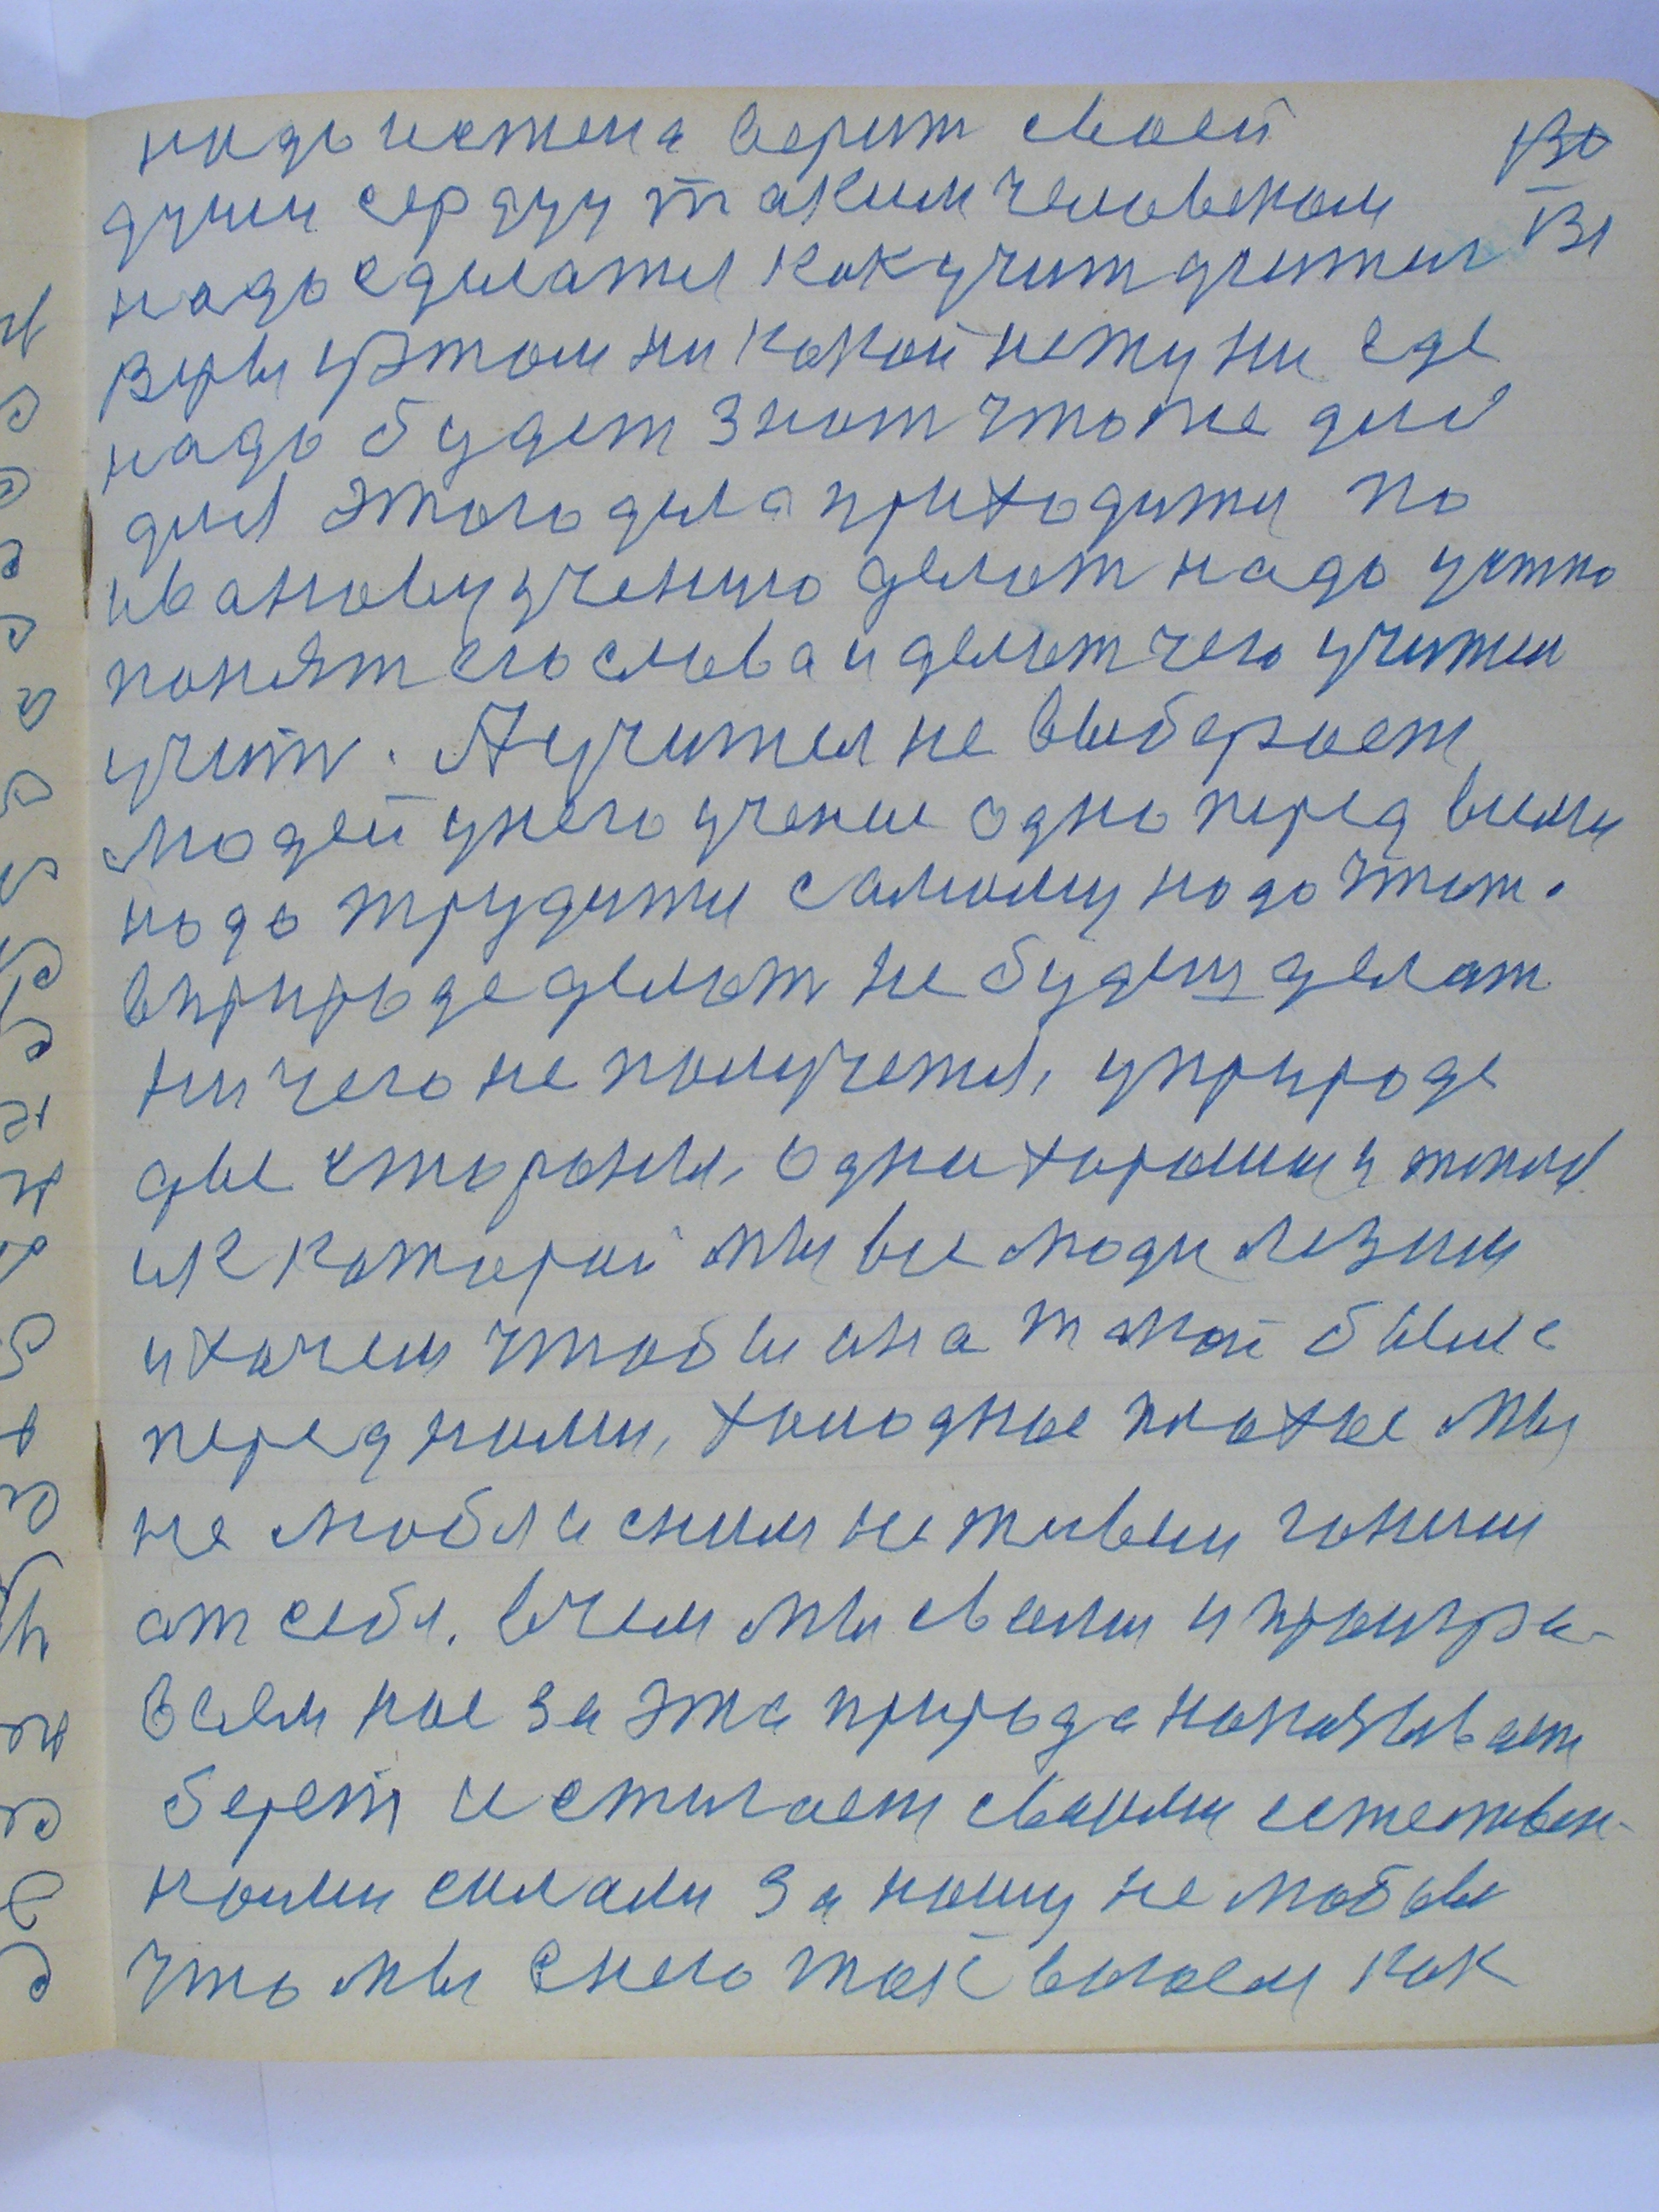 надо истена верит своей
души сердцу таким человеком
надо сделатся как учит учител
веры у этом ни какой нету ни где
надо будет знат что же для
для этого дела приходитси по
иванову учению делат надо устно
понят его слова и делат чего учител
учит. А учител не выберает
людей унего учение одно перед всеми
надо трудитси самому надо чтит.
вприроде делат не будеш делат
ни чего не получется, у природе
две стороны, одна хороши и тепла
ик которой мы все люди лезим
и хочем чтобы она такой была
перед нами, холодное плохое мы
не любля сним не живем гоним
от себя. вчем мы свами и проигра-
ваем нас за эта природа наказывает
берет и стигает своими естествен-
номи силами за нашу не любовь
что мы снего так воюем как